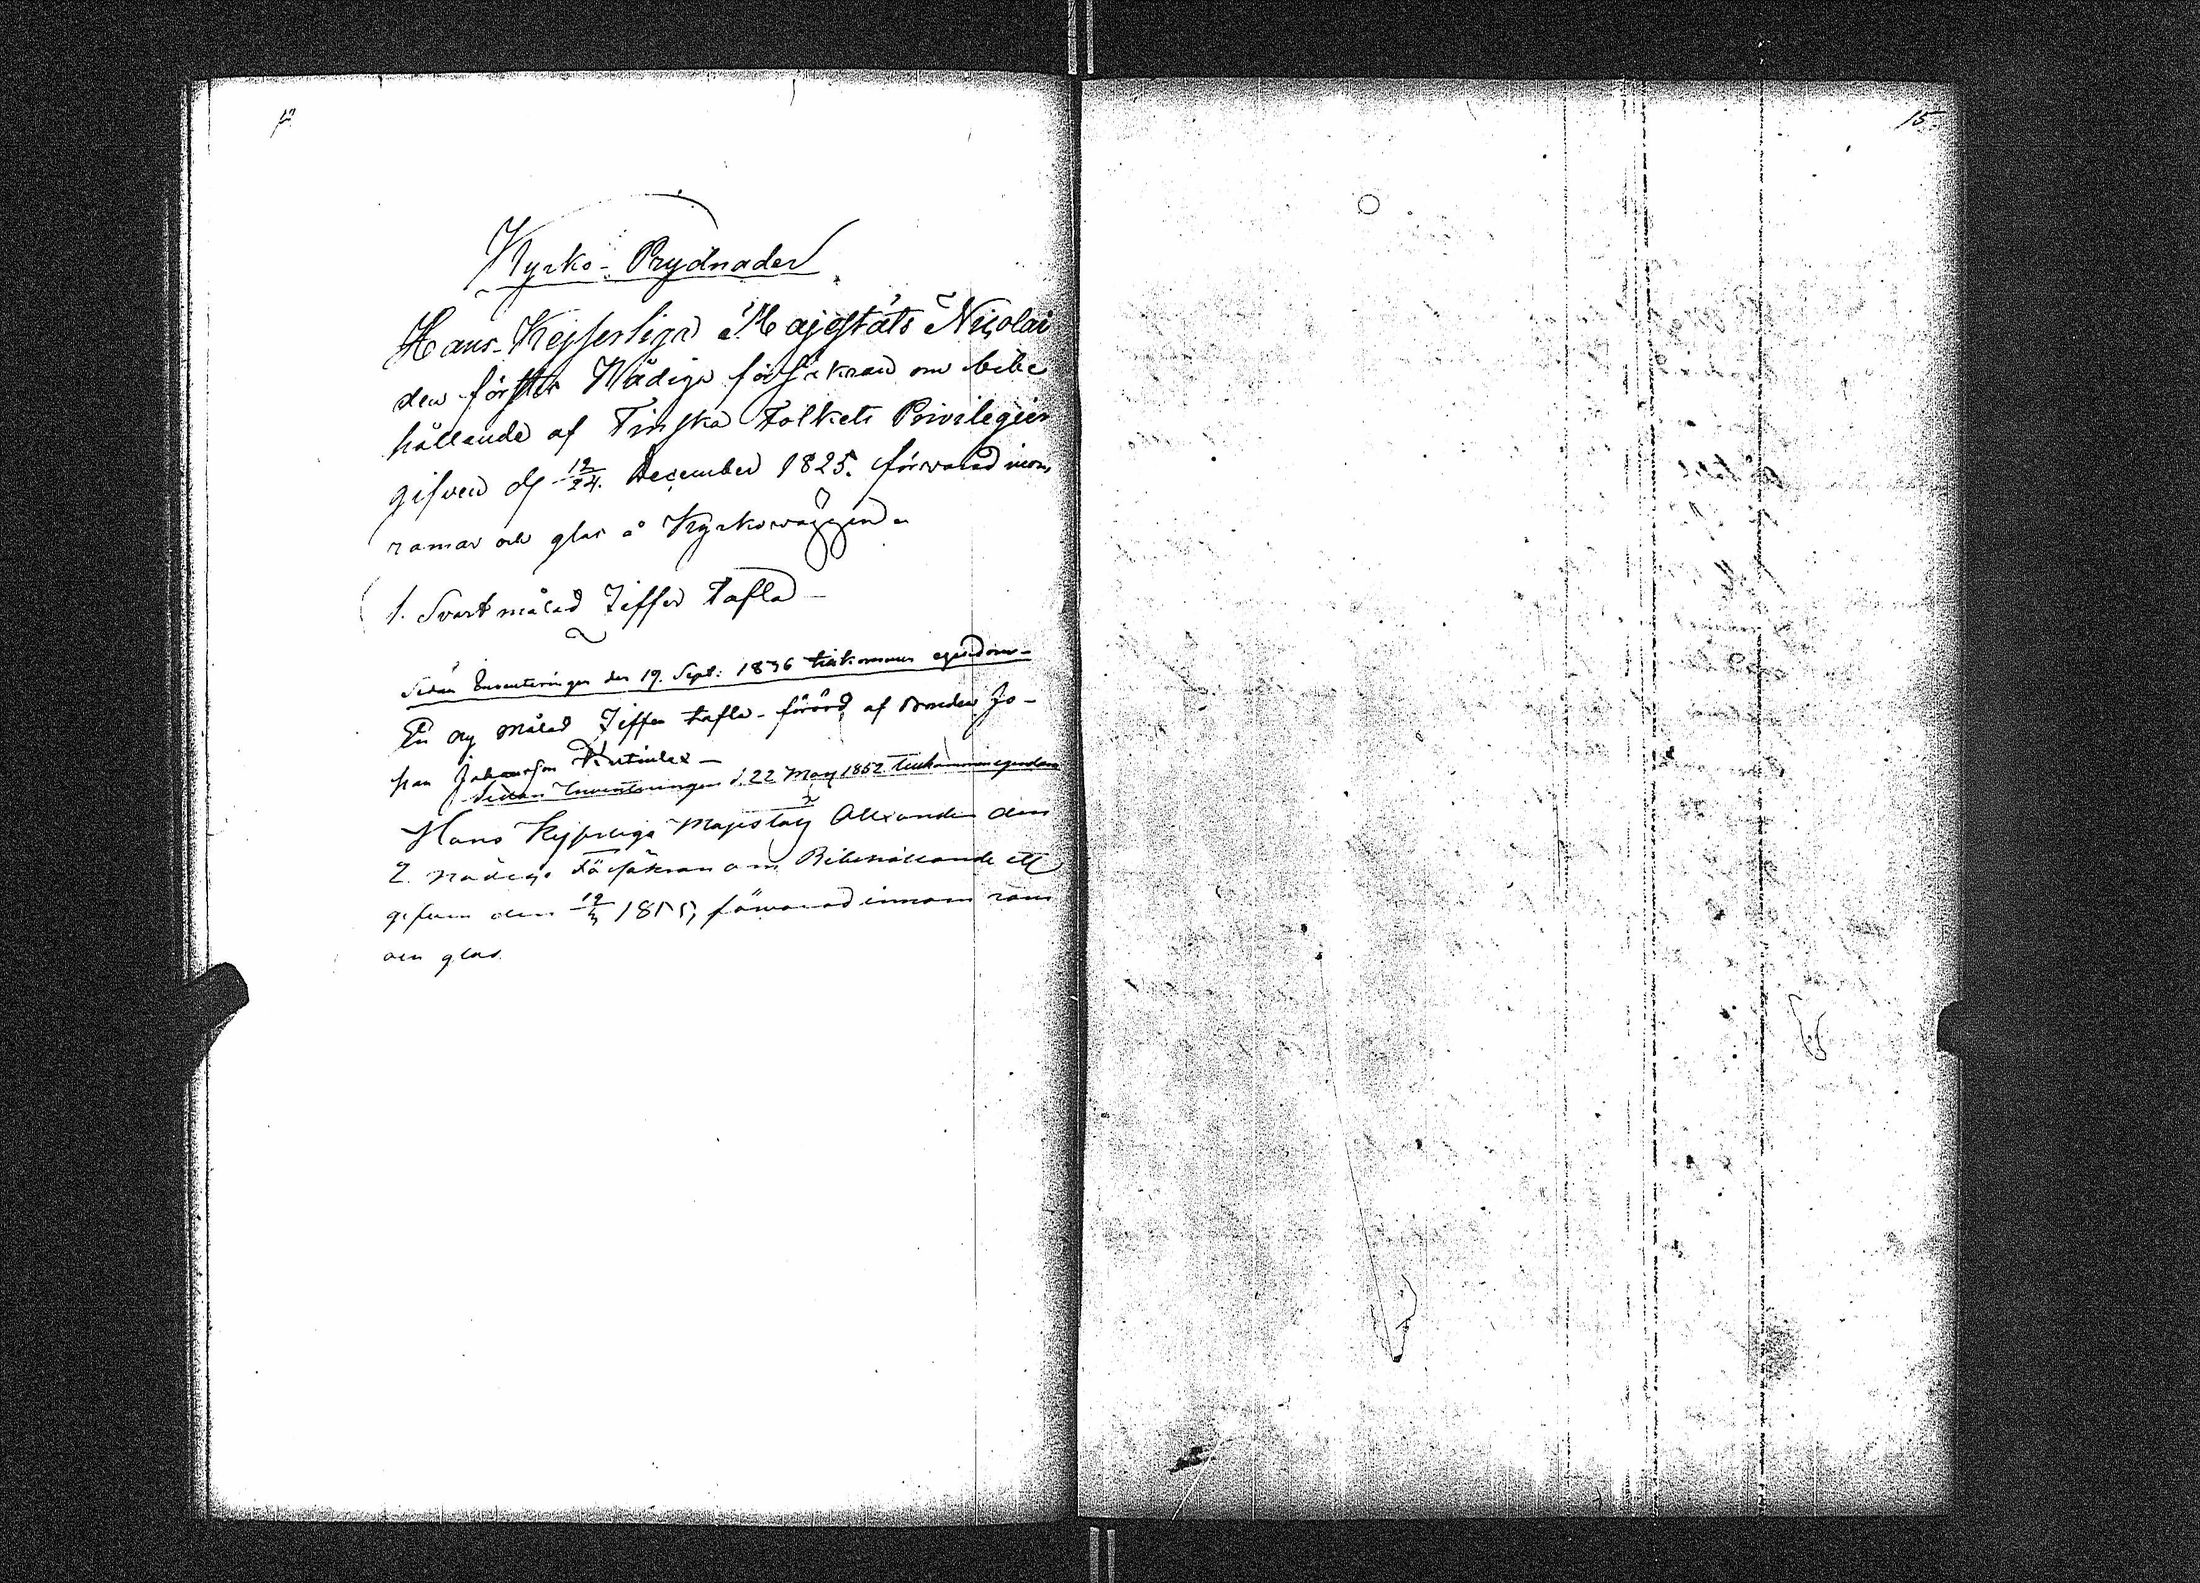 15
Kyrko-Prydnader
Hans Kejserliga Majestäts Nicolai
den förstes Nådiga försäkran om bibe
hållande af Finska Folkets Privilegier
gifven d. 12/24. December 1825. förvarad inom
ramar och glas å Kyrkoväggen.
1. Svart målad Ziffer Tafla
Sedan Inventeringen den 19. Sept: 1836 tillkommen egendom
En ny målad Ziffer tafla - förärd af Bonden Jo-
han Johansson
Sedan Inventeringen d. 22 Maij 1852 tillkommen egendom
Hans Kejserliga Majestäts Alexander den
2. nådiga Försäkran om Bibehållande etc
gifven den 1855, förvarad innom ram
och glas.